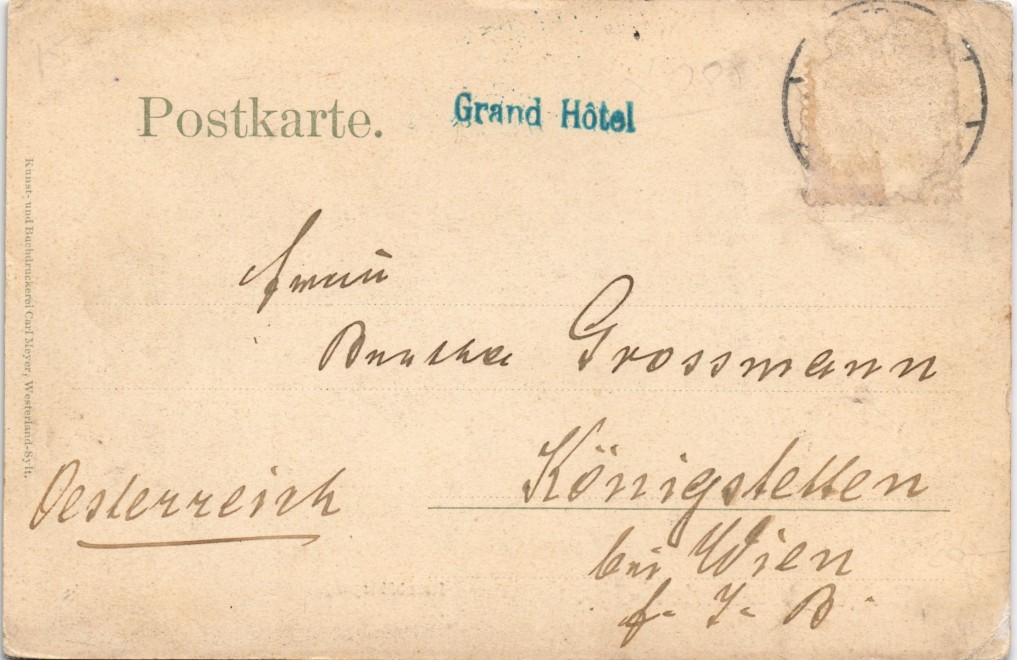 Postkarte.
Grand Hôtel
Kunst- und Buchdruckerei Carl Meyer, Westerland-Sylt.
Frau
Bertha Grossmann
Königstetten
Oesterreich
bei Wien
f. J. B.